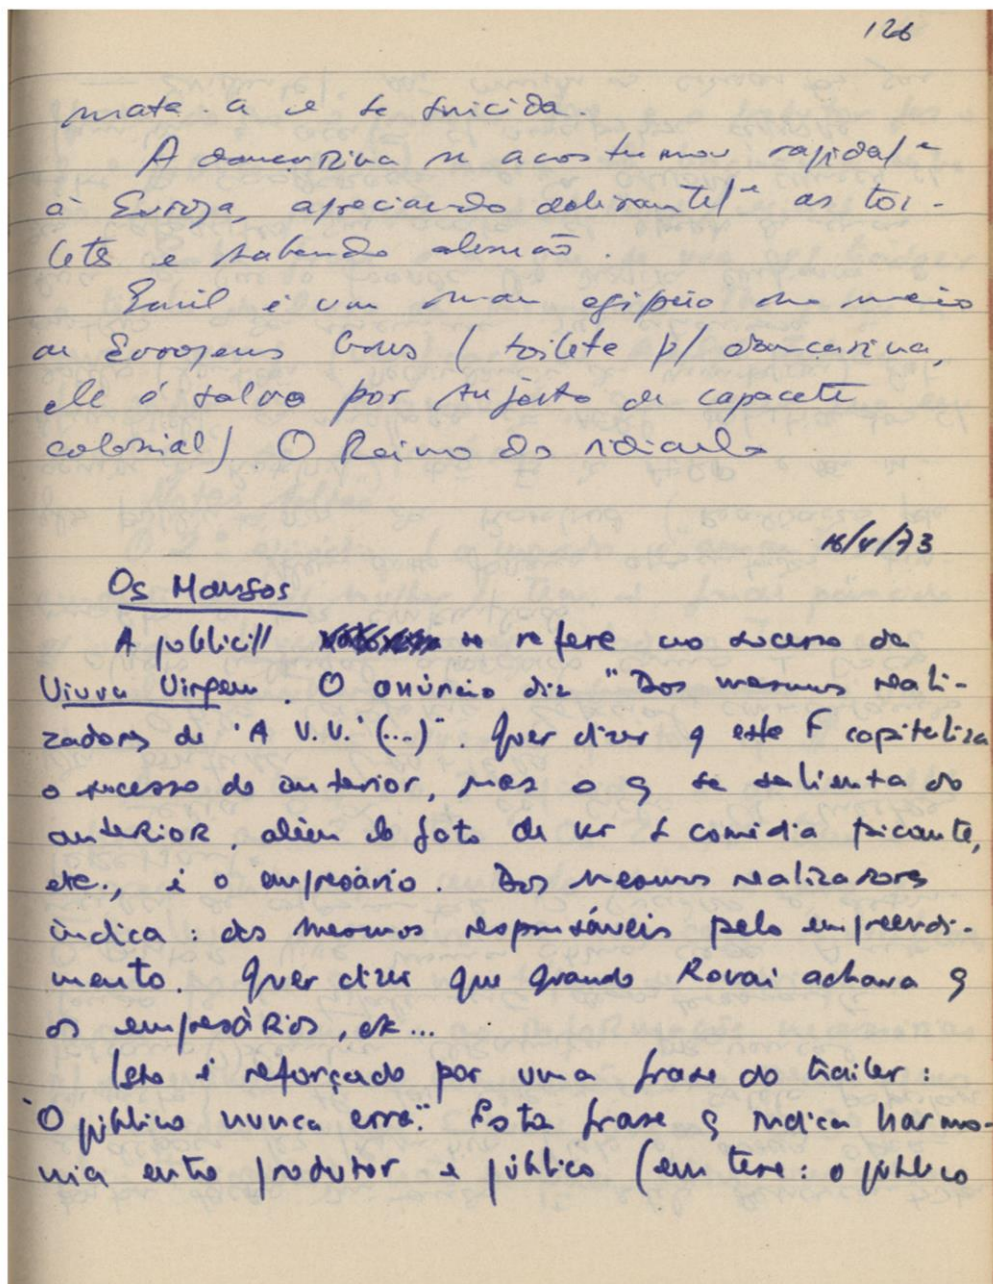 126
mata-a e se suicida.
A dançarina se acostumou rapidal/ᵉ
à Europa, apreciando delirantel/ᵉ as toi-
letes e sabendo alemão.
Emil é um mau egípcio no meio
de Europeus bons (toilete p/ dançarina,
ele é salvo por sujeito de capacete
colonial) O Reino do ridículo
16/4/73
Os Mansos
A public// se refere ao sucesso da
Viuva Virgem. O anúncio diz "Dos mesmos reali-
zadores de 'A V.V.' (...)". Quer dizer q este F capitaliza
o sucesso do anterior, mas o q se salienta do
anterior, além do fato de ser comédia picante,
etc., é o empresário. Dos mesmos realizadores
indica: dos mesmos responsáveis pelo empreendi-
mento. Quer dizer que quando Rovai achava q
os empresários, etc...
Isto é reforçado por uma frase do trailer:
"O público nunca erra". Esta frase q indica harmo-
nia entre produtor e público (em tese: o público